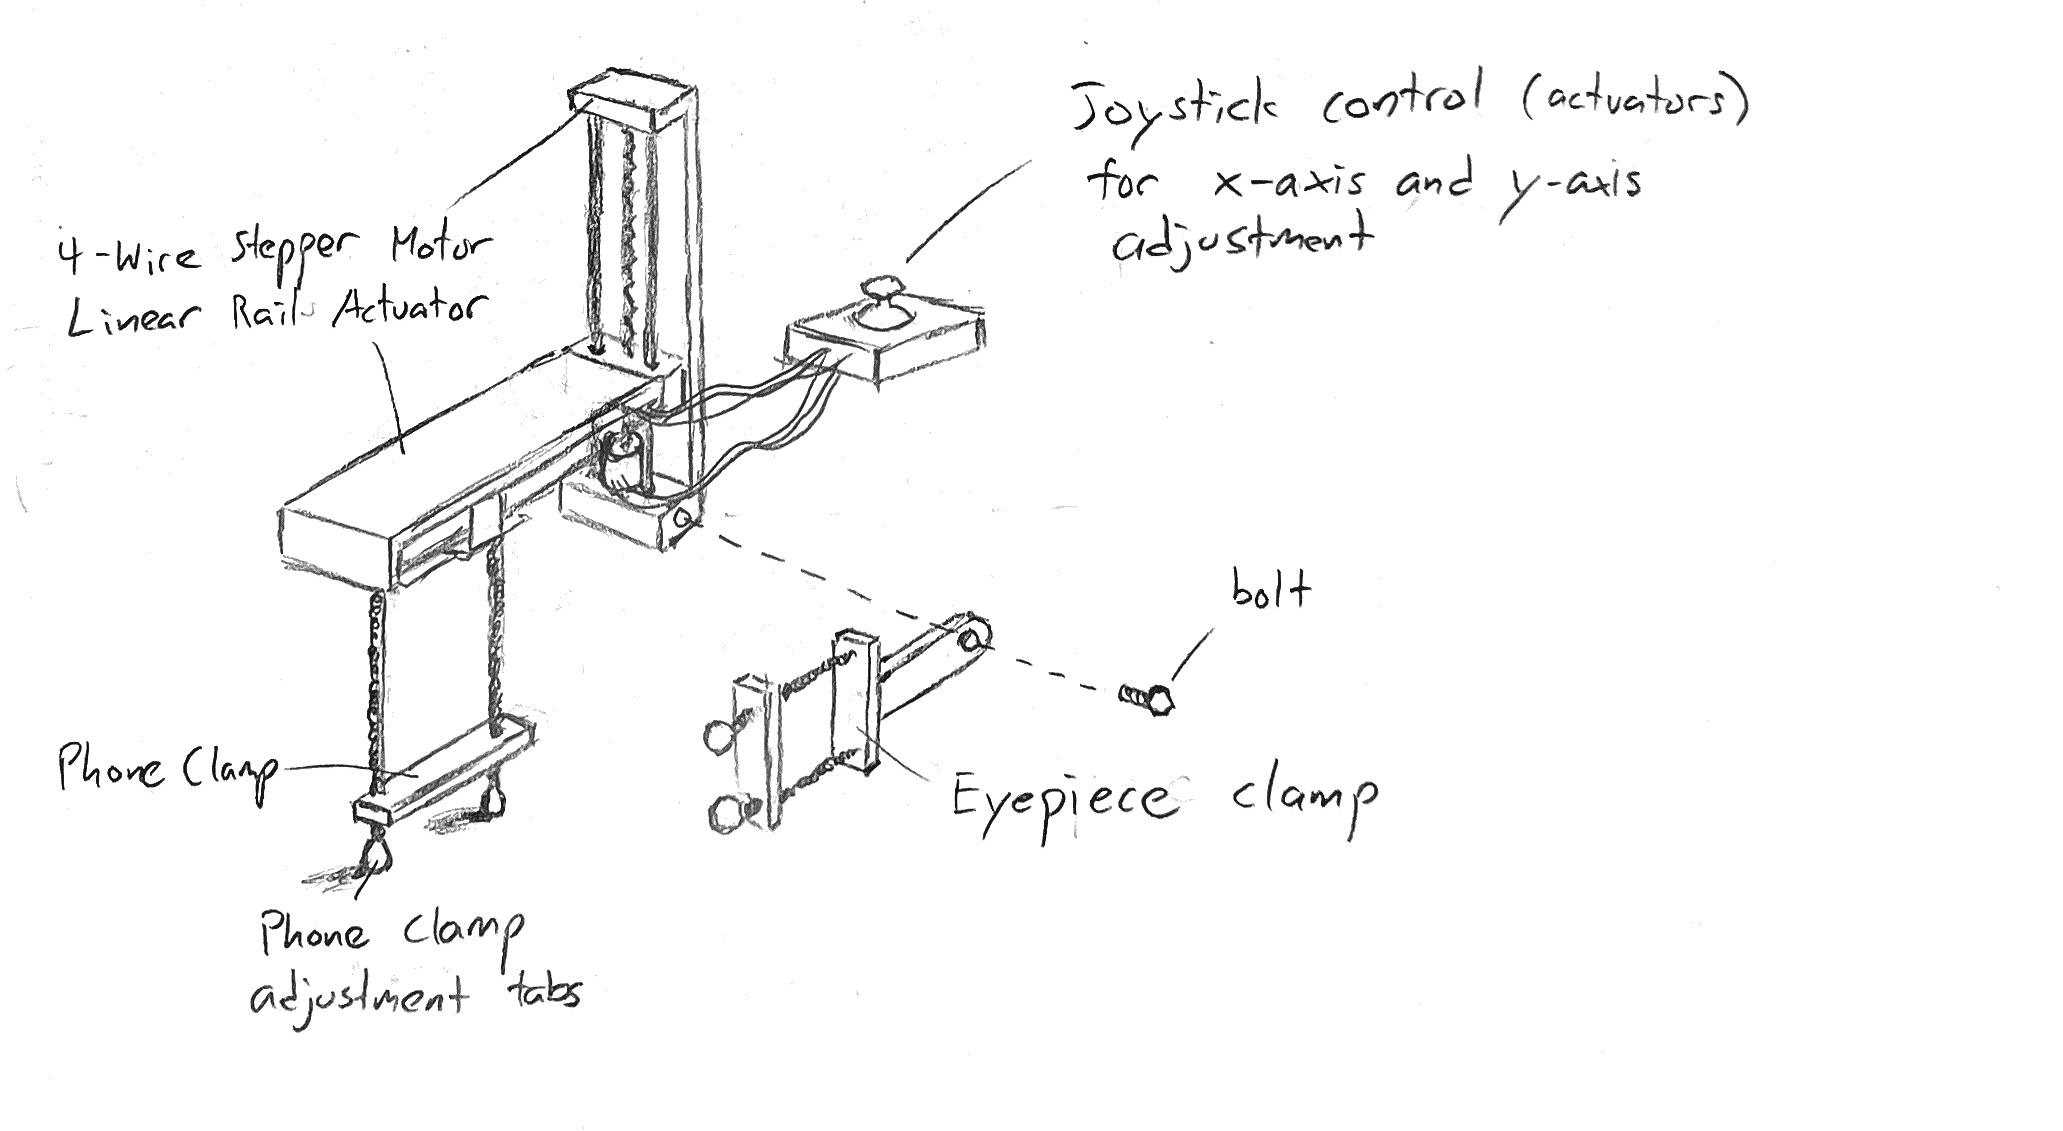 Joystick control (actuators)
for x-axis and y-axis
adjustment
4-Wire Stepper Motor
Linear Rail Actuator
bolt
Phone Clamp
Eyepiece clamp
Phone Clamp
adjustment tabs